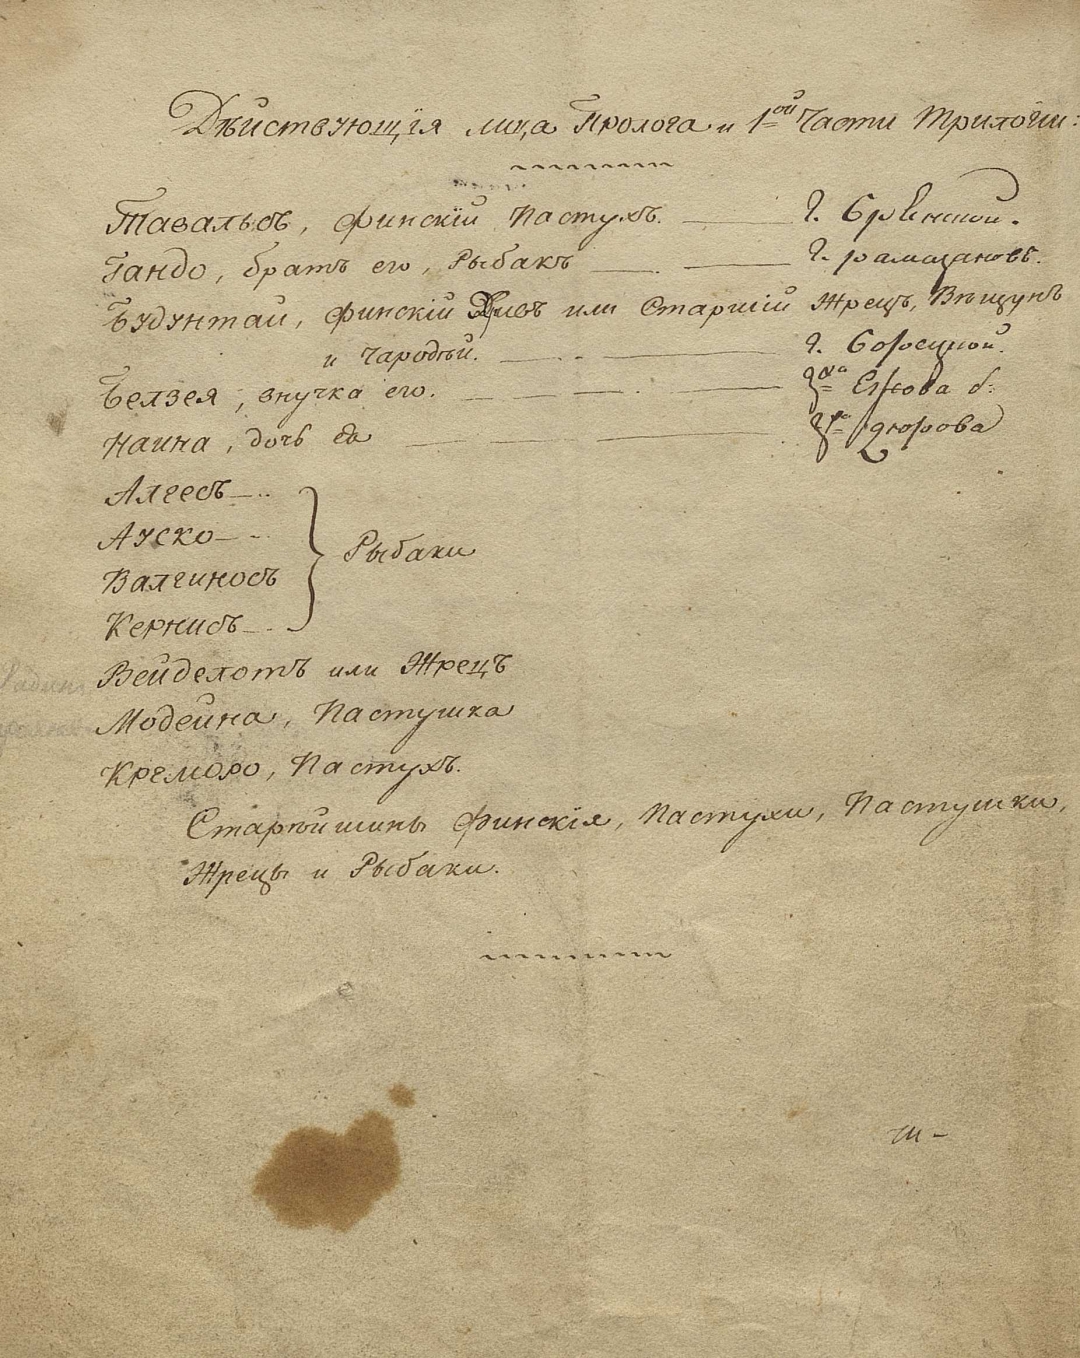 Дѣйствующія лица Пролога и 1ой Части Трилогіи:
Тавальсъ, финскій Пастухъ. г. Брянской.
Гандо, братъ его, Рыбакъ г. Рамазановъ.
Будунтай, финскій или Старшій Жрецъ, Вѣщунъ
и Чародѣй. г. Борецкой.
Белзея, внучка его. Ежова б:
Наина, дочь ея Дюрова
Алгесъ
Ауско
Валгиносъ
Кернисъ
Рыбаки
Вейделотъ или Жрецъ
Модейна, Пастушка
Креморо, Пастухъ.
Старѣйшины Финскія, Пастухи, Пастушки,
Жрецы и Рыбаки.